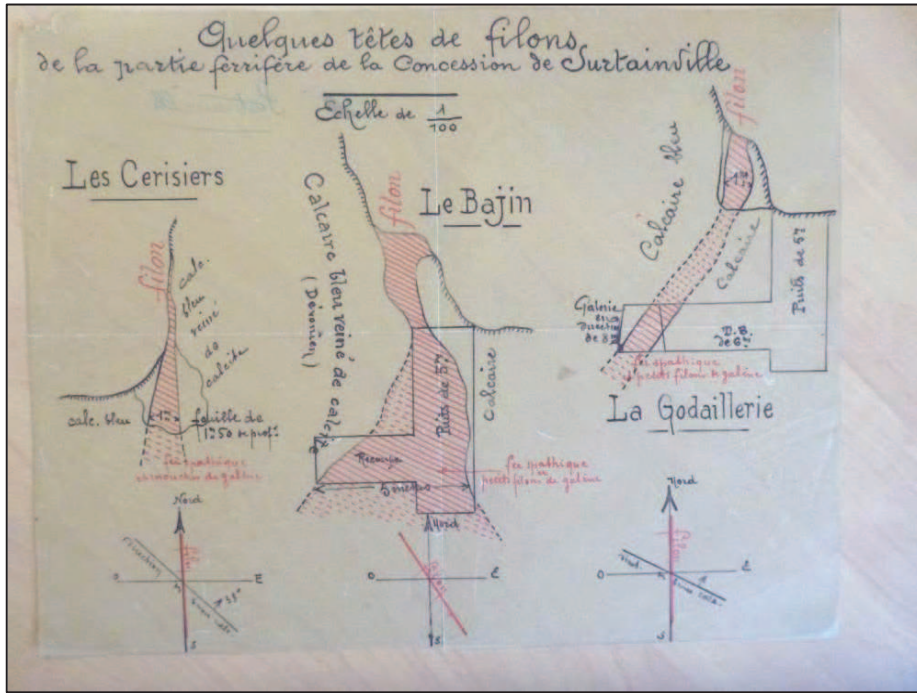 Quelques têtes de filons
de la partie ferrifère de la Concession de Surtainville
Echelle de 1/100
Les Cerisiers
filon
calc.
bleu
veiné
de
calcite
calc. bleu
1m
fouille de
1m50 de prof.
fer spathique
et mouches de galène
Nord
filon
Direction
O
E
S
Le Bajin
filon
Calcaire bleu veiné de calcite
(Dévonien)
Puits de 5m
Calcaire
Recoupe
5 mètres
fer spathique
petits filons de galène
Nord
filon
O
E
S
filon
Calcaire bleu
Calcaire
Puits de 5m
Galerie
en
direction
fer spathique
et petits filons de galène
La Godaillerie
Nord
filon
O
E
S